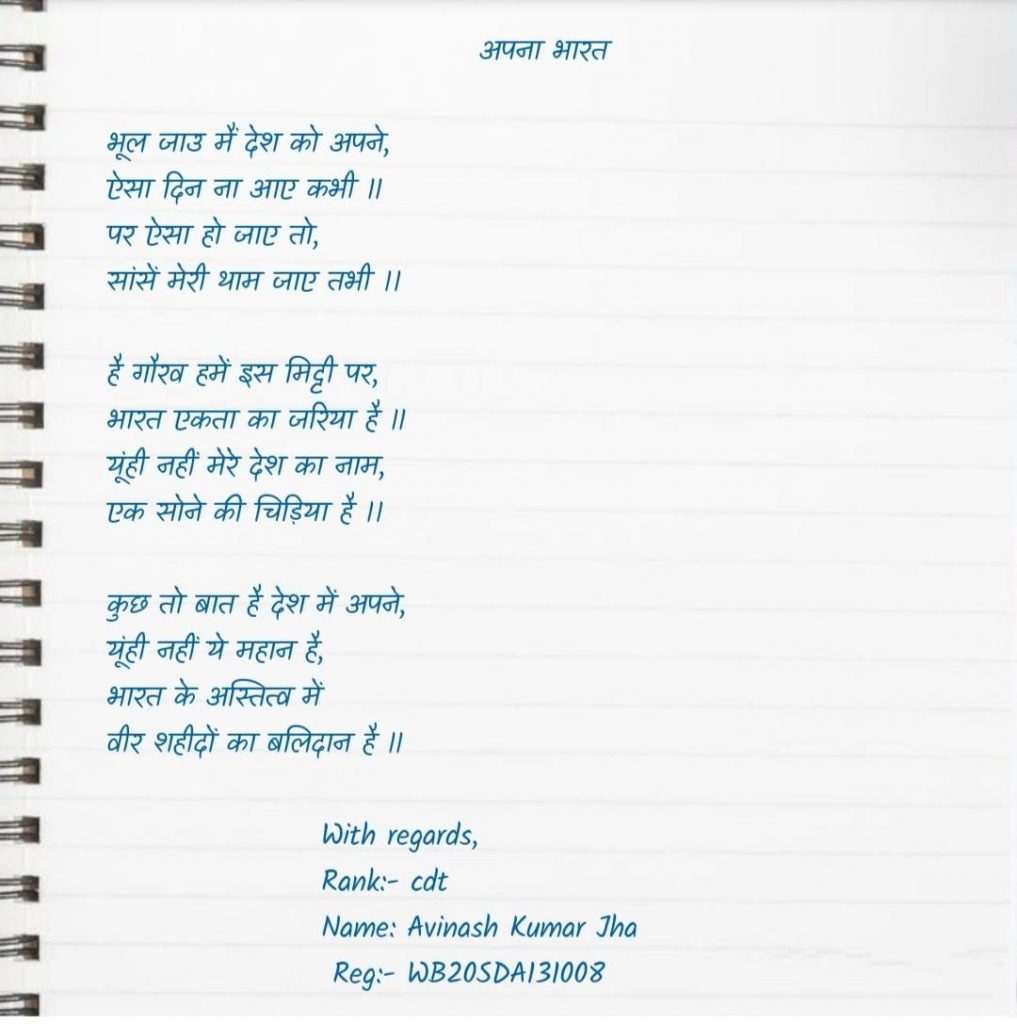 अपना भारत
भूल जाउ मैं देश को अपने,
ऐसा दिन ना आए कभी ।।
पर ऐसा हो जाए तो,
सांसें मेरी थाम जाए तभी ।।
है गौरव हमें इस मिट्टी पर,
भारत एकता का जरिया है ।।
यूंही नहीं मेरे देश का नाम,
एक सोने की चिड़िया है ।।
कुछ तो बात है देश में अपने,
यूंही नहीं ये महान है,
भारत के अस्तित्व में
वीर शहीदों का बलिदान है ।।
With regards,
Rank:- cdt
Name: Avinash Kumar Jha
Reg:- WB20SDA131008